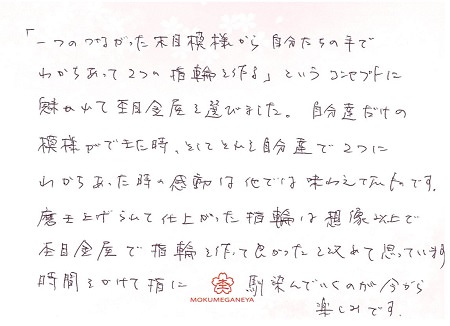 「一つのつながった木目模様から自分たちの手で
わかちあって2つの指輪を作る」というコンセプトに
魅かれて杢目金屋を選びました。自分達だけの
模様ができた時、そしてそれを自分達で2つに
わかちあった時の感動は他では味わえないものです。
磨き上げられて仕上がった指輪は想像以上で
杢目金屋で指輪を作って良かったと改めて思っています
時間をかけて指に馴染んでいくのが今から
楽しみです。
MOKUMEGANEYA